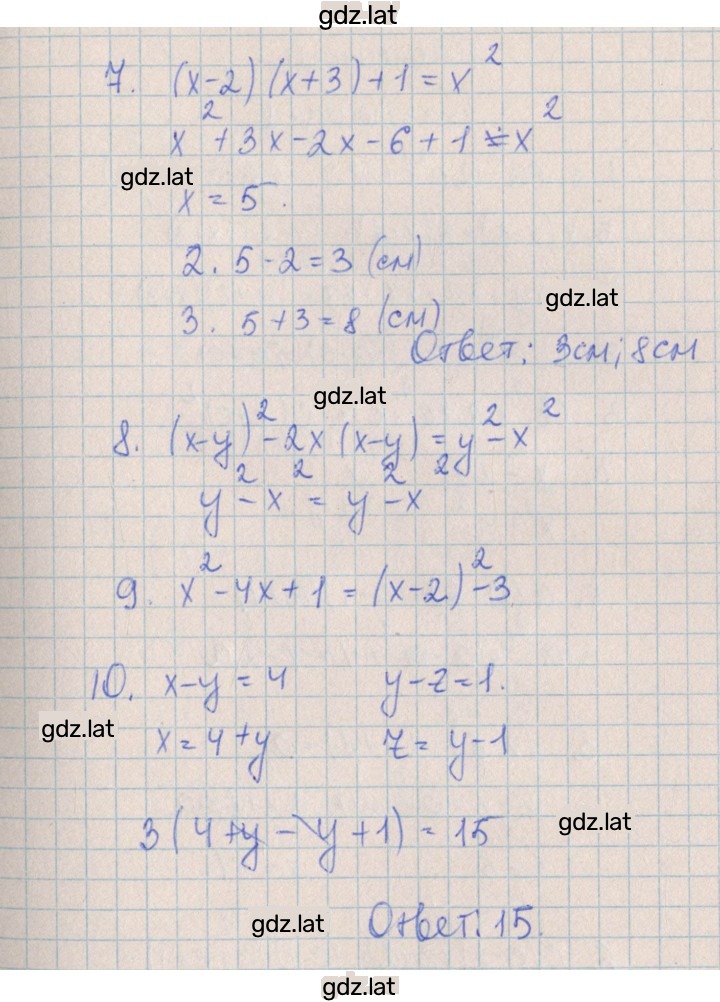 gdz.lat
7. (x-2)(x+3)+1=x²
x²+3x-2x-6+1=x²
gdz.lat
x=5.
2. 5-2=3 (см)
gdz.lat
3. 5+3=8 (см)
Ответ: 3см; 8см
gdz.lat
8. (x-y)²-2x(x-y)=y²-x²
y²-x²=y²-x²
9. x²-4x+1=(x-2)²-3
10. x-y=4 y-z=1.
gdz.lat
x=4+y z=y-1
3(4+y-y+1)=15
gdz.lat
Ответ: 15.
gdz.lat
gdz.lat